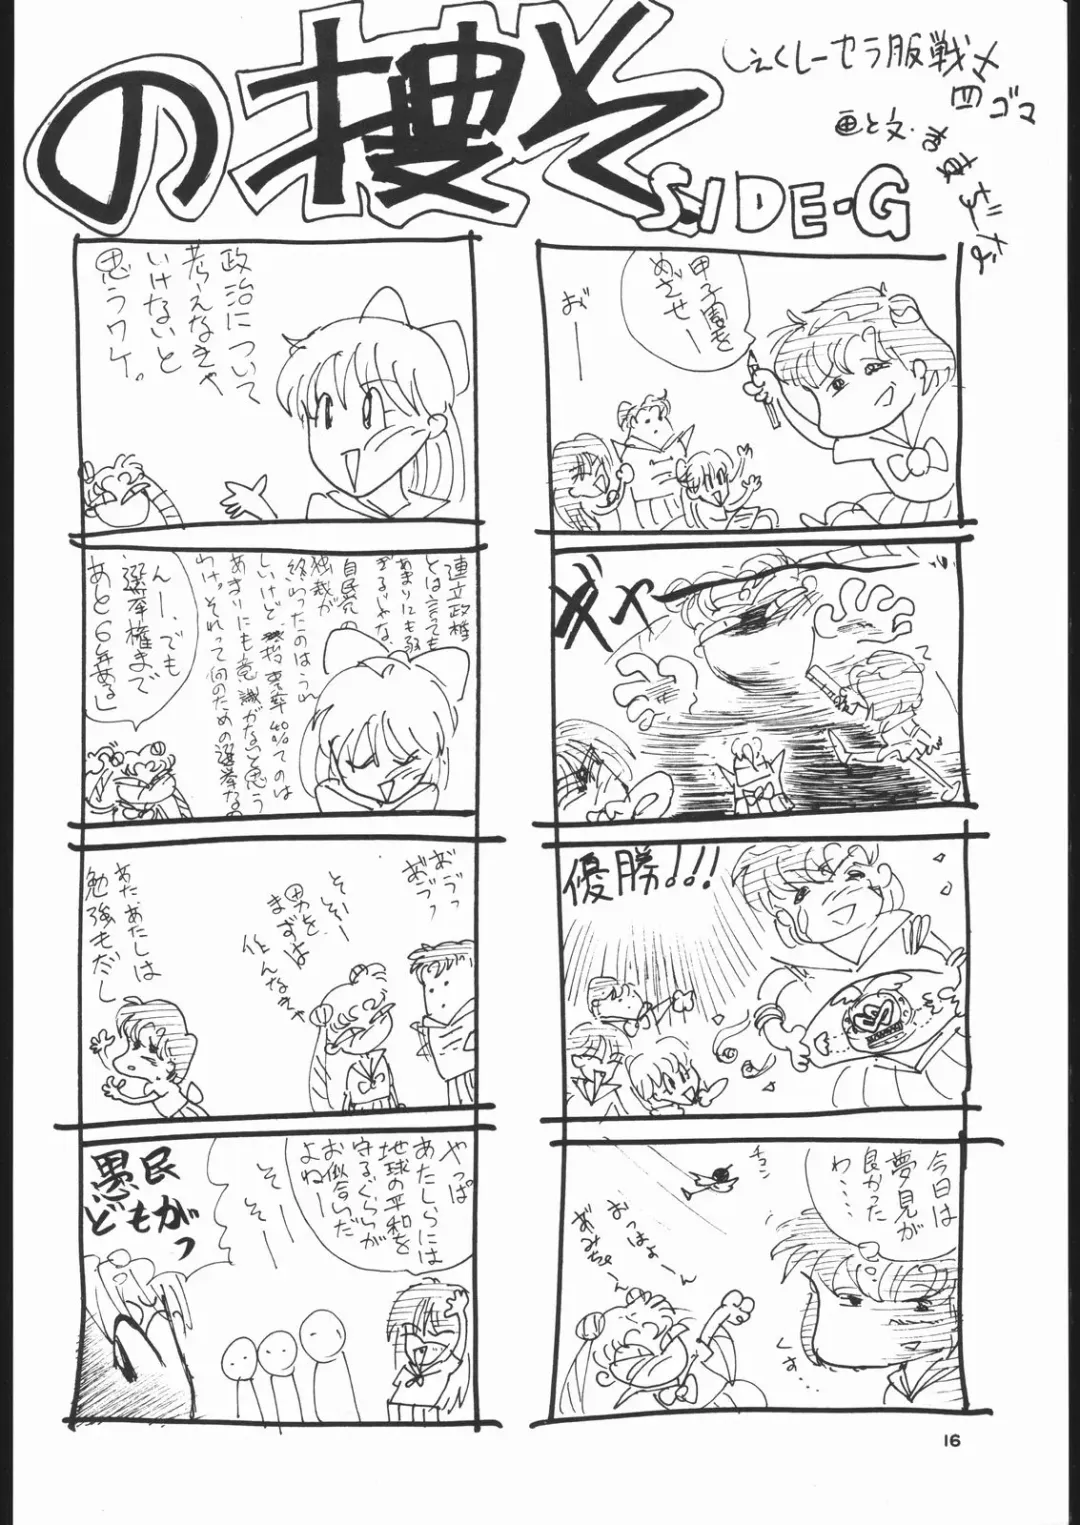 の捜そ
SIDE-G
しぇくしーセラ服戦士
四ゴマ
画と文・
甲子園を
めざせー
おーー
ギャー
優勝!!!
今日は
夢見が
良かった
わ・・・・
チュン
おっはよーん
あみちゃーん
くす・・・
政治について
考えなきゃ
いけないと
思うワケ。
連立政権
とは言っても
あまりにも弱す
ぎるしな、
自民党の
独裁が
終わったのはうれ
しいけど投票率40%てのは
あまりにも意識がないと思う
わけ。それって何のための選挙なの
んー、でも
選挙権まで
あと6年ある」
おごっっ
あごっっ
そ、そー
男を、
まずは
作んなきゃ
あた、あたしは
勉強もだし
やっぱ
あたしらには
地球の平和を
守るぐらいが
お似合いだ
よねー
そーー
そーー
愚民
どもがっ
16